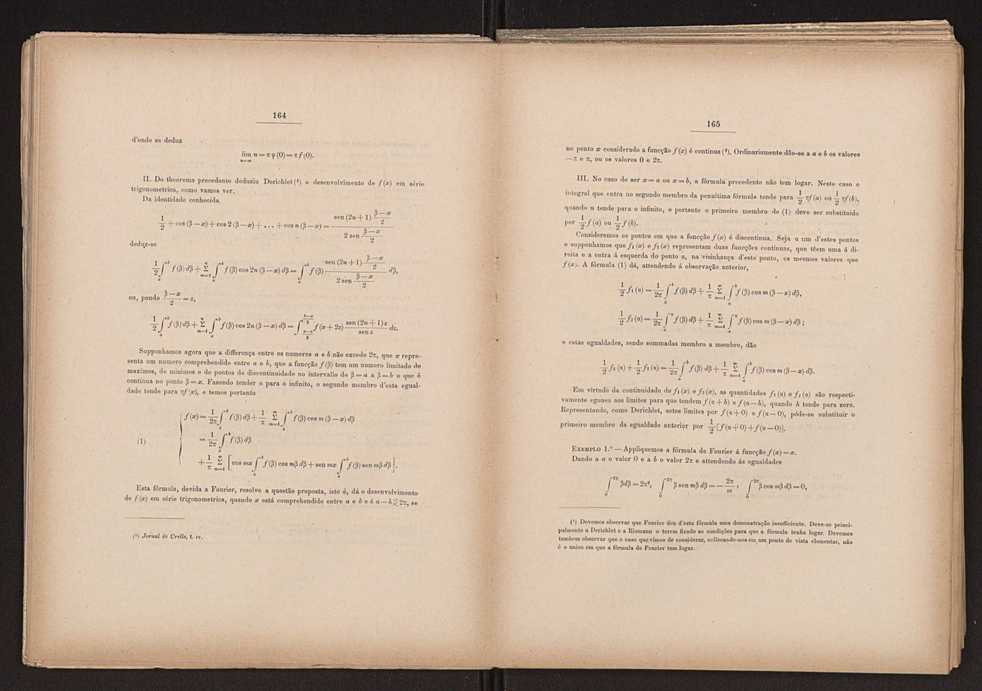 164
d'onde se deduz
lim u = π φ (0) = π f (0).
n=∞
II. Do theorema precedente deduziu Derichlet (¹) o desenvolvimento de f (x) em série
trigonometrica, como vamos ver.
Da identidade conhecida
1/2 + cos (β — x) + cos 2 (β — x) + . . . + cos n (β — x) = sen (2n + 1) (β — x)/2 / 2 sen (β — x)/2
deduz-se
1/2 ∫ₐᵇ f (β) dβ + Σ ∫ₐᵇ f (β) cos 2n (β — x) dβ = ∫ₐᵇ f (β) sen (2n + 1) (β — x)/2 / 2 sen (β — x)/2 dβ,
ou, pondo (β — x)/2 = z,
1/2 ∫ₐᵇ f (β) dβ + Σ ∫ₐᵇ f (β) cos 2n (β — x) dβ = ∫ f (x + 2z) sen (2n + 1) z / sen z dz.
Supponhamos agora que a differença entre os numeros a e b não excede 2π, que x repre-
senta um numero comprehendido entre a e b, que a funcção f (β) tem um numero limitado de
maximos, de minimos e de pontos de discontinuidade no intervallo de β = a a β = b e que é
continua no ponto β = x. Fazendo tender n para o infinito, o segundo membro d'esta egual-
dade tende para πf (x), e temos portanto
f (x) = 1/2π ∫ₐᵇ f (β) dβ + 1/π Σ ∫ₐᵇ f (β) cos m (β — x) dβ
(1) = 1/2π ∫ₐᵇ f (β) dβ
+ 1/π Σ [cos mx ∫ₐᵇ f (β) cos mβ dβ + sen mx ∫ₐᵇ f (β) sen mβ dβ].
Esta fórmula, devida a Fourier, resolve a questão proposta, isto é, dá o desenvolvimento
de f (x) em série trigonometrica, quando x está comprehendido entre a e b e é a — b ≦ 2π, se
(¹) Jornal de Crelle, t. IV.
165
no ponto x considerado a funcção f (x) é continua (¹). Ordinariamente dão-se a a e b os valores
— π e π, ou os valores 0 e 2π.
III. No caso de ser x = a ou x = b, a fórmula precedente não tem logar. Neste caso o
integral que entra no segundo membro da penultima fórmula tende para 1/2 πf (a) ou 1/2 πf (b),
quando n tende para o infinito, e portanto o primeiro membro de (1) deve ser substituido
por 1/2 f (a) ou 1/2 f (b).
Consideremos os pontos em que a funcção f (x) é discontinua. Seja a um d'estes pontos
e supponhamos que f₁ (x) e f₂ (x) representam duas funcções continuas, que têem uma á di-
reita e a outra á esquerda do ponto a, na visinhança d'este ponto, os mesmos valores que
f (x). A fórmula (1) dá, attendendo á observação anterior,
1/2 f₁ (a) = 1/2π ∫ₐᵇ f (β) dβ + 1/π Σ ∫ₐᵇ f (β) cos m (β — x) dβ,
1/2 f₂ (a) = 1/2π ∫ f (β) dβ + 1/π Σ ∫ f (β) cos m (β — x) dβ ;
e estas egualdades, sendo sommadas membro a membro, dão
1/2 f₁ (a) + 1/2 f₂ (a) = 1/2π ∫ f (β) dβ + 1/π Σ ∫ f (β) cos m (β — x) dβ.
Em virtude da continuidade de f₁ (x) e f₂ (x), as quantidades f₁ (a) e f₂ (a) são respecti-
vamente eguaes aos limites para que tendem f (a + h) e f (a — h), quando h tende para zero.
Representando, como Derichlet, estes limites por f (a + 0) e f (a — 0), póde-se substituir o
primeiro membro da egualdade anterior por 1/2 [f (a + 0) + f (a — 0)].
EXEMPLO 1.º — Appliquemos a fórmula de Fourier á funcção f (x) = x.
Dando a a o valor 0 e a b o valor 2π e attendendo ás egualdades
∫₀²π βdβ = 2π², ∫₀²π β sen mβ dβ = — 2π/m , ∫₀²π β cos mβ dβ = 0,
(¹) Devemos observar que Fourier deu d'esta fórmula uma demonstração insufficiente. Deve-se princi-
palmente a Derichlet e a Riemann o terem fixado as condições para que a fórmula tenha logar. Devemos
tambem observar que o caso que vimos de considerar, collocando-nos em um ponto de vista elementar, não
é o unico em que a fórmula de Fourier tem logar.